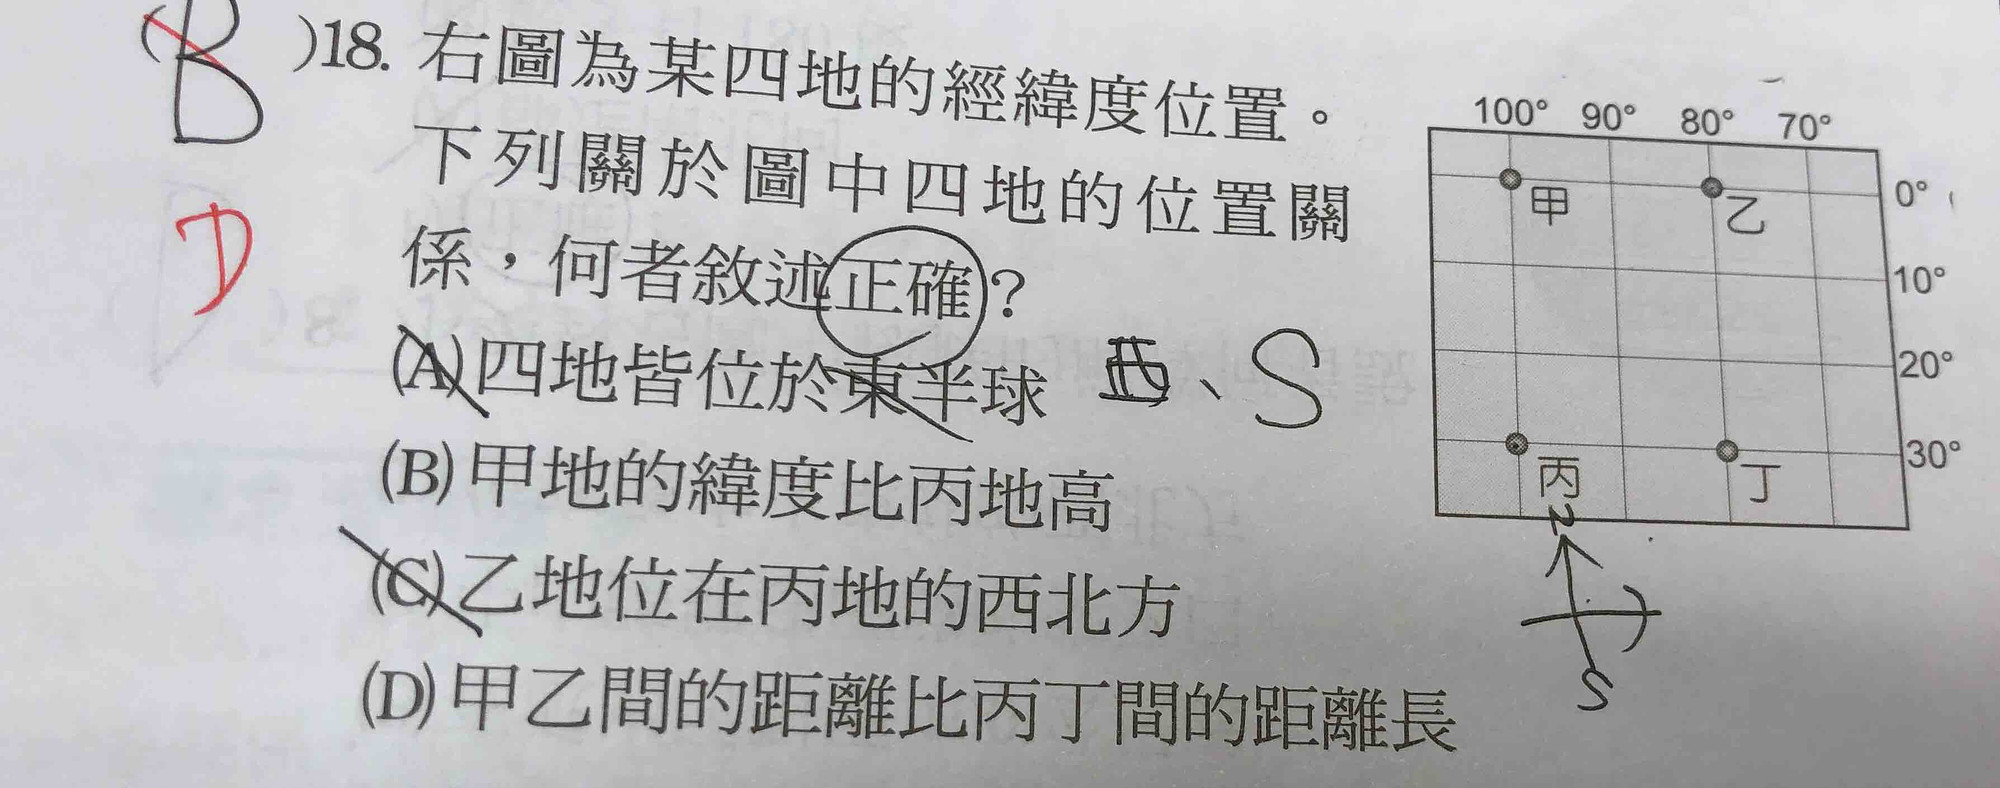 (B)18. 右圖為某四地的經緯度位置。
下列關於圖中四地的位置關
係，何者敘述正確？
(A)四地皆位於東半球 西、S
(B)甲地的緯度比丙地高
(C)乙地位在丙地的西北方
(D)甲乙間的距離比丙丁間的距離長
D
100° 90° 80° 70°
甲 乙 0°
10°
20°
30°
丙 丁
S